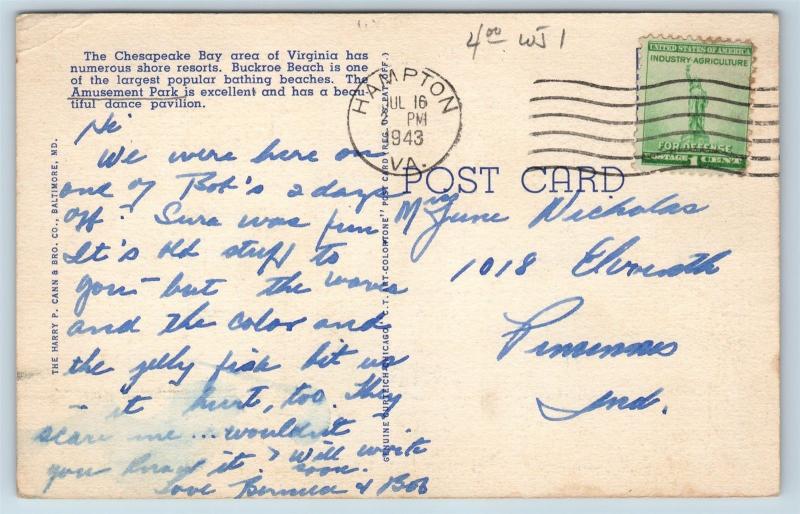 4.00 WJ 1
The Chesapeake Bay area of Virginia has
numerous shore resorts. Buckroe Beach is one
of the largest popular bathing beaches. The
Amusement Park is excellent and has a beau-
tiful dance pavilion.
HAMPTON
JUL 16
PM
1943
VA.
UNITED STATES OF AMERICA
INDUSTRY·AGRICULTURE
FOR DEFENSE
POSTAGE 1 CENT
POST CARD
Hi
We were here on
one of Bob's 2 days
off. Sure was fun
It's old stuff to
you - but the waves
and the color and
the jelly fish bit us
- it hurt, too. They
scare me... wouldn't
you know it? Will write
soon.
Love & Bob
June Nicholas
1018
Ind.
THE HARRY P. CANN & BRO. CO., BALTIMORE, MD.
GENUINE CURTEICH-CHICAGO "C. T. ART-COLORTONE" POST CARD (REG. U. S. PAT. OFF.)